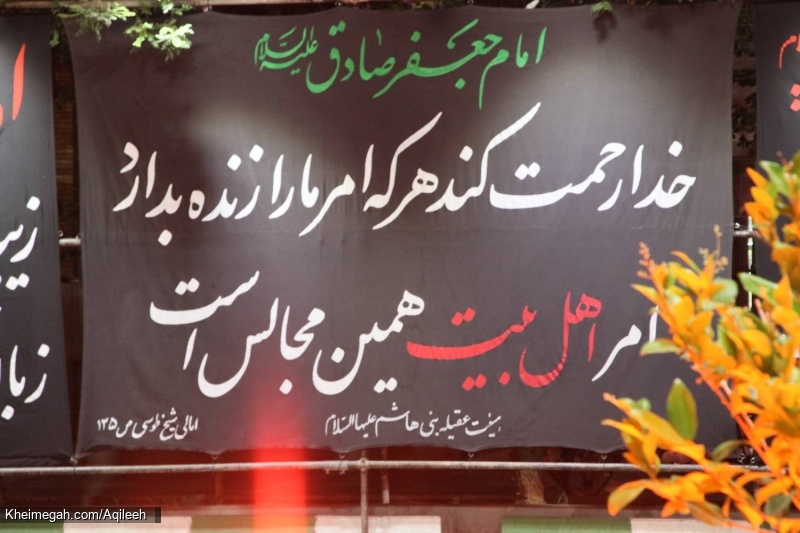 امام جعفر صادق علیه السلام
خدا رحمت کند هر که امر ما را زنده بدارد
امر اهل بیت همین مجالس است
هیئت عقیله بنی هاشم علیها السلام
امالی شیخ طوسی ص ۱۳۵
Kheimegah.com/Aqileeh